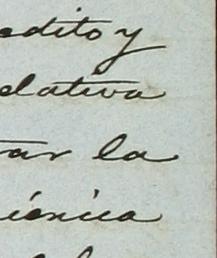 edito y
elativa
tar la
iénica